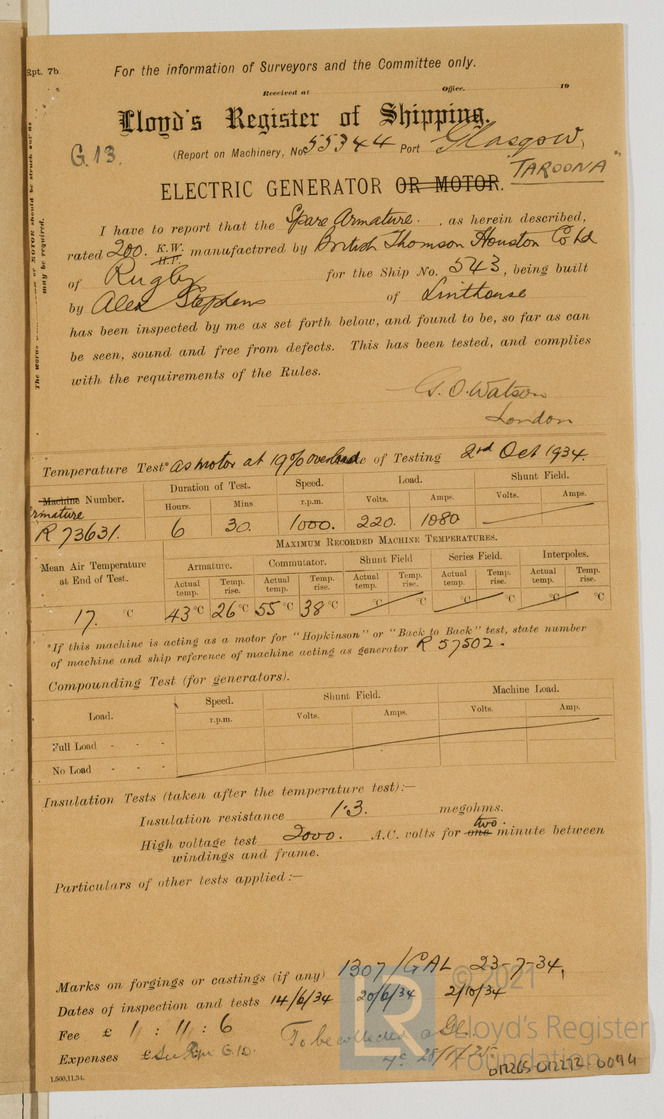 Rpt. 7b.
For the information of Surveyors and the Committee only.
Received at Office. 19
Lloyd's Register of Shipping.
G.13.
(Report on Machinery, No. 55344 Port Glasgow,
TAROONA
ELECTRIC GENERATOR OR MOTOR.
may be required.
I have to report that the Spare Armature. as herein described,
rated 200. K.W. H.P. manufactured by British Thomson Houston Co Ltd
of Rugby for the Ship No. 543, being built
by Alex Stephens of Linthouse
has been inspected by me as set forth below, and found to be, so far as can
be seen, sound and free from defects. This has been tested, and complies
with the requirements of the Rules.
G. O. Watson
London
Temperature Test* as motor at 19% overload e of Testing 2nd Oct 1934.
Machine Number. Duration of Test. Speed. Load. Shunt Field.
Armature Hours. Mins r.p.m. Volts. Amps. Volts. Amps.
R 73631. 6 30. 1000. 220. 1080
MAXIMUM RECORDED MACHINE TEMPERATURES.
Mean Air Temperature at End of Test. Armature. Commutator. Shunt Field Series Field. Interpoles.
Actual temp. Temp. rise. Actual temp. Temp. rise. Actual temp. Temp. rise. Actual temp. Temp. rise. Actual temp. Temp. rise.
17. °C 43 °C 26 °C 55 °C 38 °C °C °C °C °C °C °C
*If this machine is acting as a motor for "Hopkinson" or "Back to Back" test, state number
of machine and ship reference of machine acting as generator R 57502.
Compounding Test (for generators).
Load. Speed. Shunt Field. Machine Load.
r.p.m. Volts. Amps. Volts. Amp.
Full Load - - -
No Load - - -
Insulation Tests (taken after the temperature test):—
Insulation resistance 1.3. megohms.
High voltage test 2000. A.C. volts for one two. minute between
windings and frame.
Particulars of other tests applied:—
Marks on forgings or castings (if any) 1307/GAL 23-7-34,
Dates of inspection and tests 14/6/34 20/6/34 2/10/34
Fee £ 1 : 11 : 6
To be collected
Expenses £
1,500,11.34.
© 2021
LR
Lloyd's Register
Foundation
012265-012272-0094